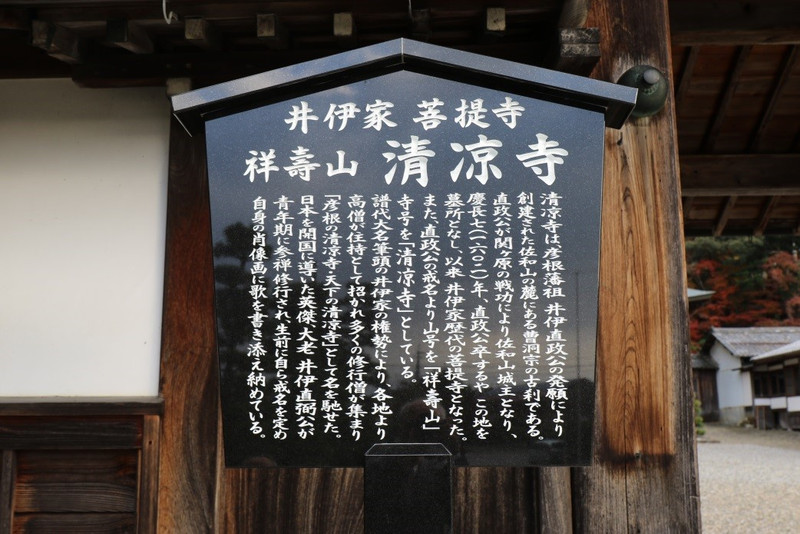 井伊家 菩提寺
祥壽山 清凉寺
清凉寺は彦根藩祖 井伊直政公の発願により
創建された佐和山の麓にある曹洞宗の古刹である。
直政公が関ヶ原の戦功により佐和山城主となり、
慶長七(一六〇二)年、直政公卒するや この地を
墓所となし、以来 井伊家歴代の菩提寺となった。
また、直政公の戒名より山号を「祥壽山」
寺号を「清凉寺」としている。
譜代大名筆頭の井伊家の権勢により、各地より
高僧が住持として招かれ多くの修行僧が集まり
「彦根の清凉寺・天下の清凉寺」として名を馳せた。
日本を開国に導いた英傑、大老 井伊直弼公が
青年期に参禅修行され生前に自ら戒名を定め
自身の肖像画に歌を書き添え納めている。